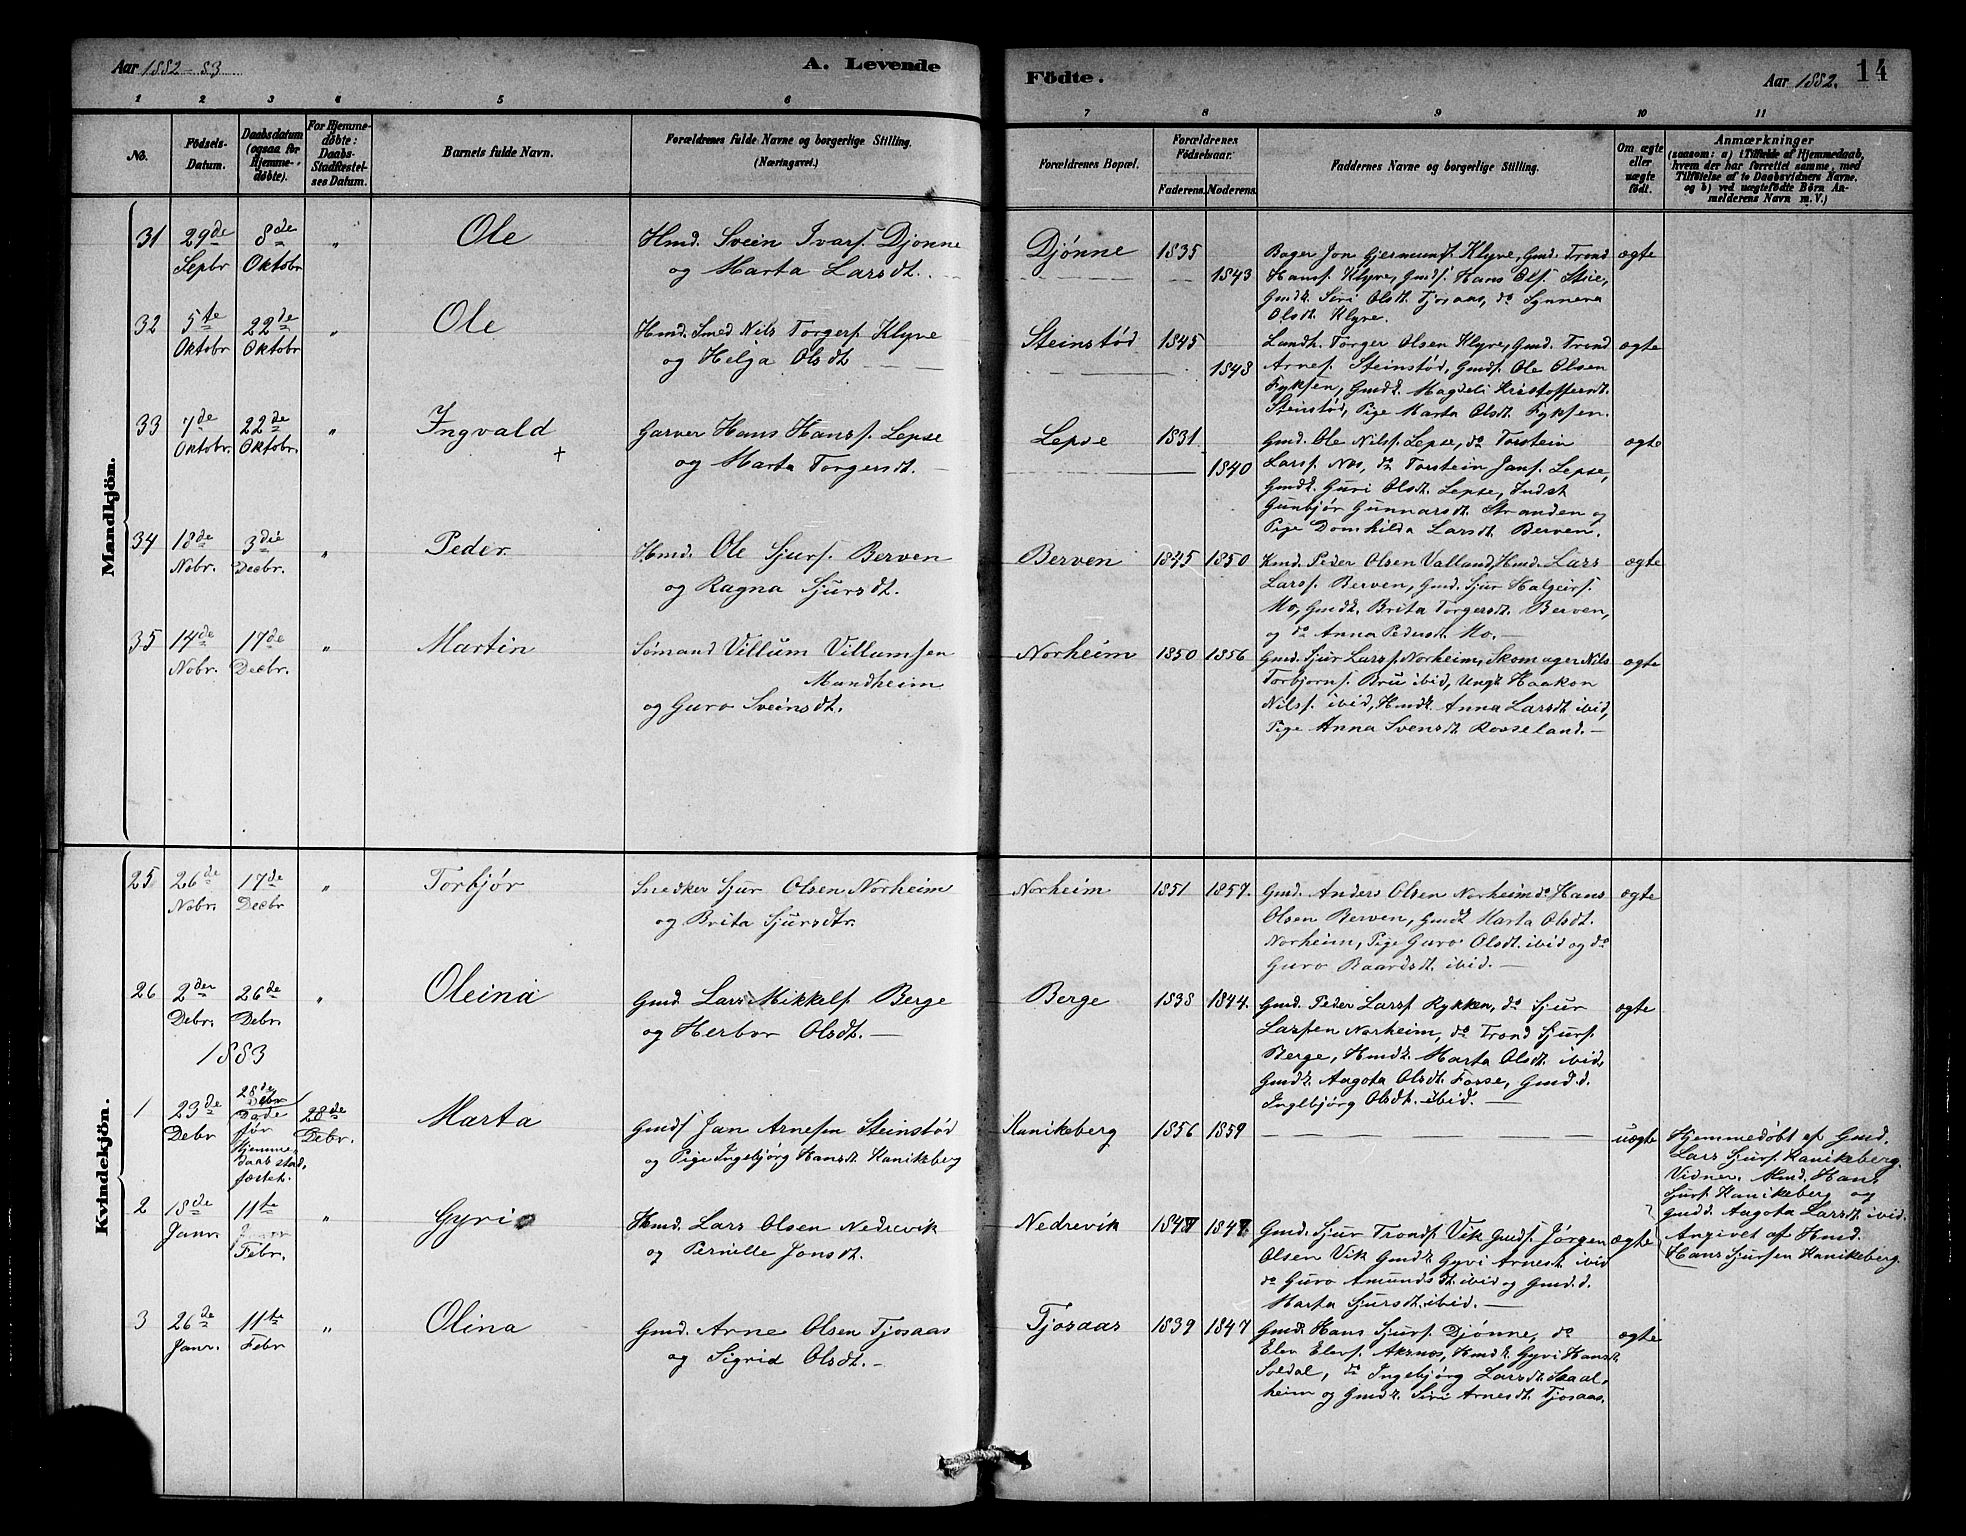 Aar 1882-83
A. Levende
Födte.
Aar 1882.
14
1 2 3 4 5 6 7 8 9 10 11
No.
Födsels-
Datum.
Daabsdatum
(ogsaa for
Hjemme-
døbte).
For Hjemme-
døbte:
Daabs-
Stadfæstel-
ses Datum.
Barnets fulde Navn.
Forældrenes fulde Navne og borgerlige Stilling.
(Næringsvei.)
Forældrenes Bopæl.
Forældrenes
Födselsaar.
Faderens. Moderens.
Faddernes Navne og borgerlige Stilling.
Om ægte
eller
uægte
født.
Anmærkninger
(saasom: a) i Tilfælde af Hjemmedaab,
hvem der har forrettet samme, med
Tilføielse af to Daabsvidners Navne.
og b) ved uægtefødte Børn An-
melderens Navn m. V.)
Mandkjön.
31 29de Septbr 8de Oktobr " Ole
Hmd. Svein Ivars. Djønne
og Marta Larsdt.
Djønne 1835 1843
Bager Jon Gjermunds. Klyve, Gmd. Trond
Hans. Klyve, Gmds. Hans Ols.
Gmdk. Siri Olsdt. Tjosaas, do Synneva
Olsdt. Klyve.
ægte
32 5te Oktobr 22de Oktobr " Ole
Hmd. Smed Nils Torgers. Klyve
og Helga Olsdt
Steinstød 1845 1848
Landh. Torger Olsen Klyve, Gmd. Trond
Arnes. Steinstød, Gmds. Ole Olsen
Fyksen, Gmdk. Magdeli Kristoffersdt.
Steinstød, Pige Marta Olsdt. Fyksen.
ægte
33 7de Oktobr. 22de Oktobr. " Ingvald +
Garver Hans Hans. Lepse
og Marta Torgersdt.
Lepse 1831 1840
Gmd. Ole Nils. Lepse, do Torstein
Lars. Nes, do Torstein Jans. Lepse,
Gmdk. Guri Olsdt. Lepse, Indst
Gunbjør Gunnarsdt. Stranden og
Pige Domhilda Larsdt. Berven.
ægte
34 18de Nobr. 3die Decbr. " Peder
Hmd. Ole Sjurs. Berven
og Ragna Sjursdt.
Berven 1845 1850
Kmd. Peder Olsen Valland, Hmd. Lars
Lars. Berven, Gmd. Sjur Halgeirs.
Mo, Gmdk. Brita Torgersdt. Berven,
og do Anna Pedersdt. Mo.
ægte
35 14de Nobr. 17de Decbr. " Martin
Sømand Villum Villumsen
Mundheim
og Guro Sveinsdt.
Norheim 1850 1856
Gmd. Sjur Lars. Norheim, Skomager Nils
Torbjorns. Bru ibid, Ungk. Haakon
Nils. ibid, Hmdk. Anna Larsdt ibid,
Pige Anna Svensdt. Rosseland.
ægte
Kvindekjön.
25 26de Nobr. 17de Decbr " Torbjør
Snedker Sjur Olsen Norheim
og Brita Sjursdtr.
Norheim 1851 1857.
Gmd. Anders Olsen Norheim do Hans
Olsen Berven, Gmdk Marta Olsdt.
Norheim, Pige Guro Olsdt. ibid og do
Guro Baardsdt. ibid.
ægte
26 2den Debr. 26de Debr. " Oleina
Gmd. Lars Mikkels. Berge
og Herbor Olsdt.
Berge 1838 1844.
Gmd. Peder Lars. Rykken, do Sjur
Larsen Norheim, do Trond Sjurs.
Berge, Hmdk. Marta Olsdt ibid,
Gmdk. Aagota Olsdt. Fosse, Gmd.d.
Ingebjørg Olsdt. ibid.
ægte
1883
1 23de Debr 28de Debr
Dade
før
Hjemme-
daab stad-
fæstet.
28de Debr. Marta
Gmds. Jan Arnesen Steinstød
og Pige Ingebjørg Hansdt. Kanikeberg
Kanikeberg 1856 1859
uægte
Hjemmedøbt af Gmd.
Lars Sjurs. Kanikeberg.
Vidner. Hmd. Hans
Sjurs. Kanikeberg og
Gmdd. Aagota Larsdt. ibid.
Angivet af Hmd.
Hans Sjursen Kanikeberg.
2 18de Janr. 11te Febr. " Gyri
Hmd. Lars Olsen Nedrevik
og Pernille Jonsdt.
Nedrevik 1847 1847
Gmd. Sjur Tronds. Vik Gmds. Jörgen
Olsen Vik Gmdk. Gyri Arnesdt ibid
do Guro Amundsdt ibid og Gmd.d.
Marta Sjursdt. ibid.
ægte
3 26de Janr. 11te Febr " Olina
Gmd. Arne Olsen Tjosaas
og Sigrid Olsdt.
Tjosaas 1839 1847
Gmd. Hans Sjurs. Djønne, do
Elev Elevs. Aksnes, Hmdk. Gyri Hansdt.
Soldal, do Ingebjørg Larsdt. Skaal-
heim og Gmdk. Siri Arnesdt. Tjosaas.
ægte